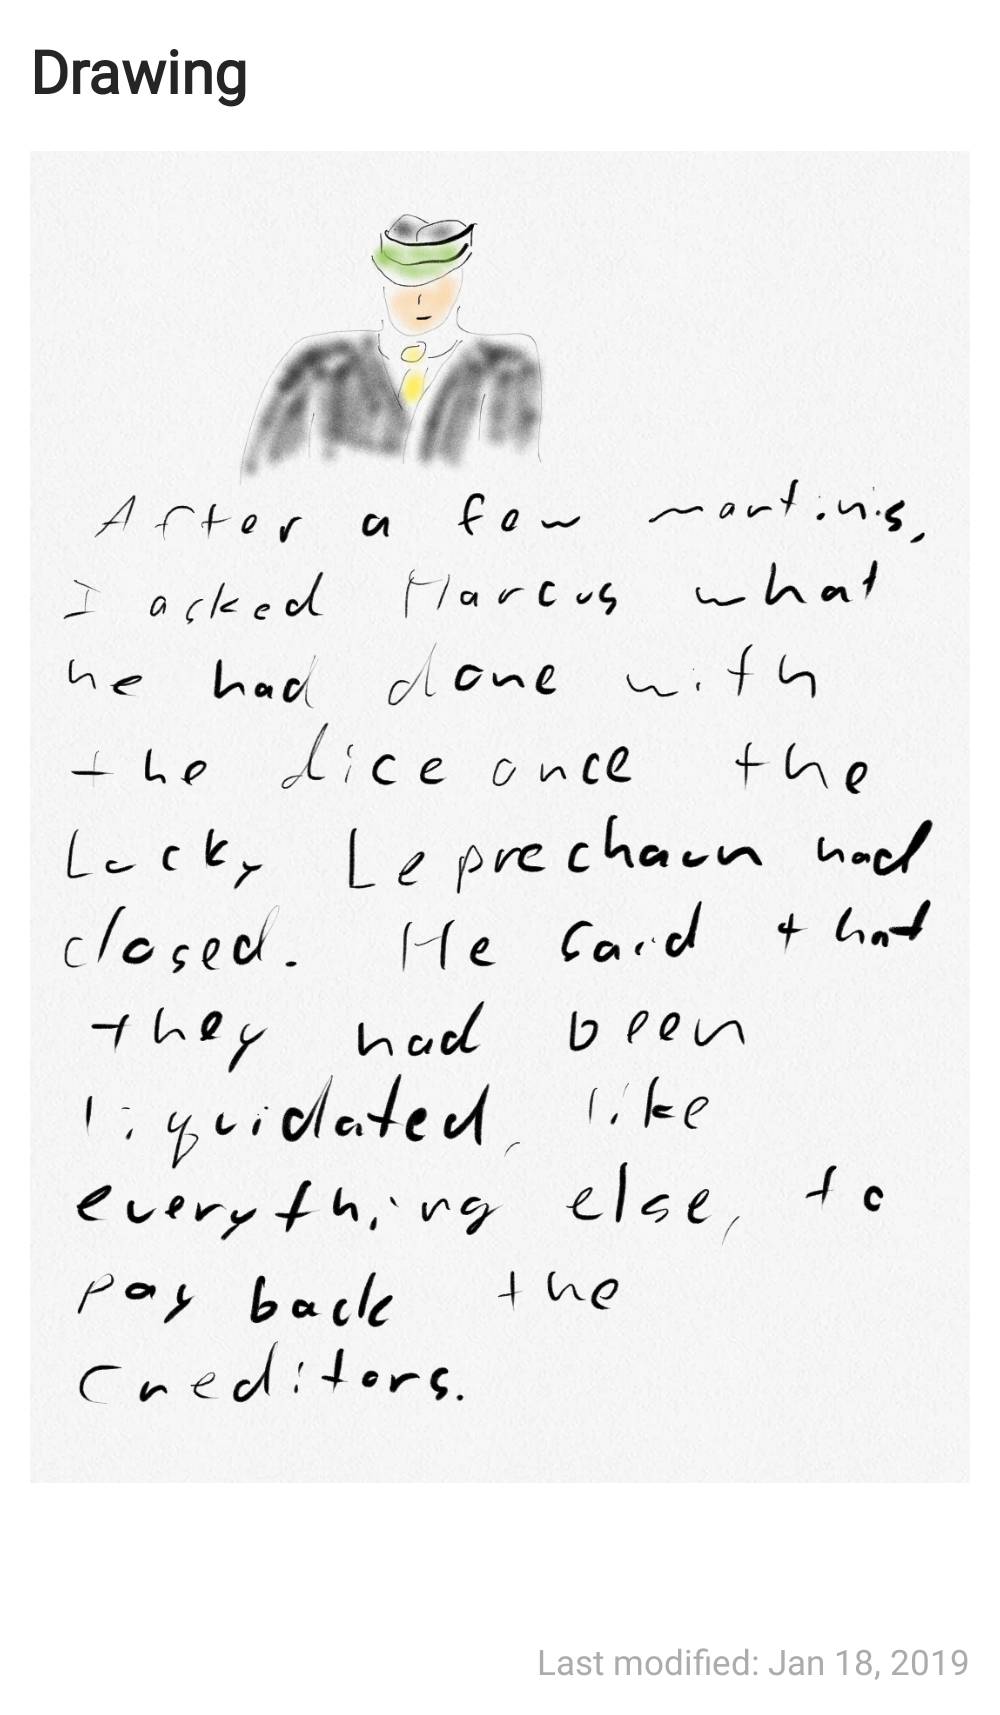 Drawing
After a few martinis,
I asked Marcus what
he had done with
the dice once the
Lucky Leprechaun had
closed. He said that
they had been
liquidated, like
everything else, to
pay back the
creditors.
Last modified: Jan 18, 2019